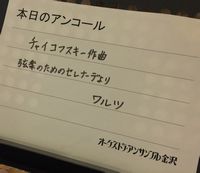 本日のアンコール
チャイコフスキー作曲
弦奏のためのセレナーデより
ワルツ
オーケストラ・アンサンブル金沢